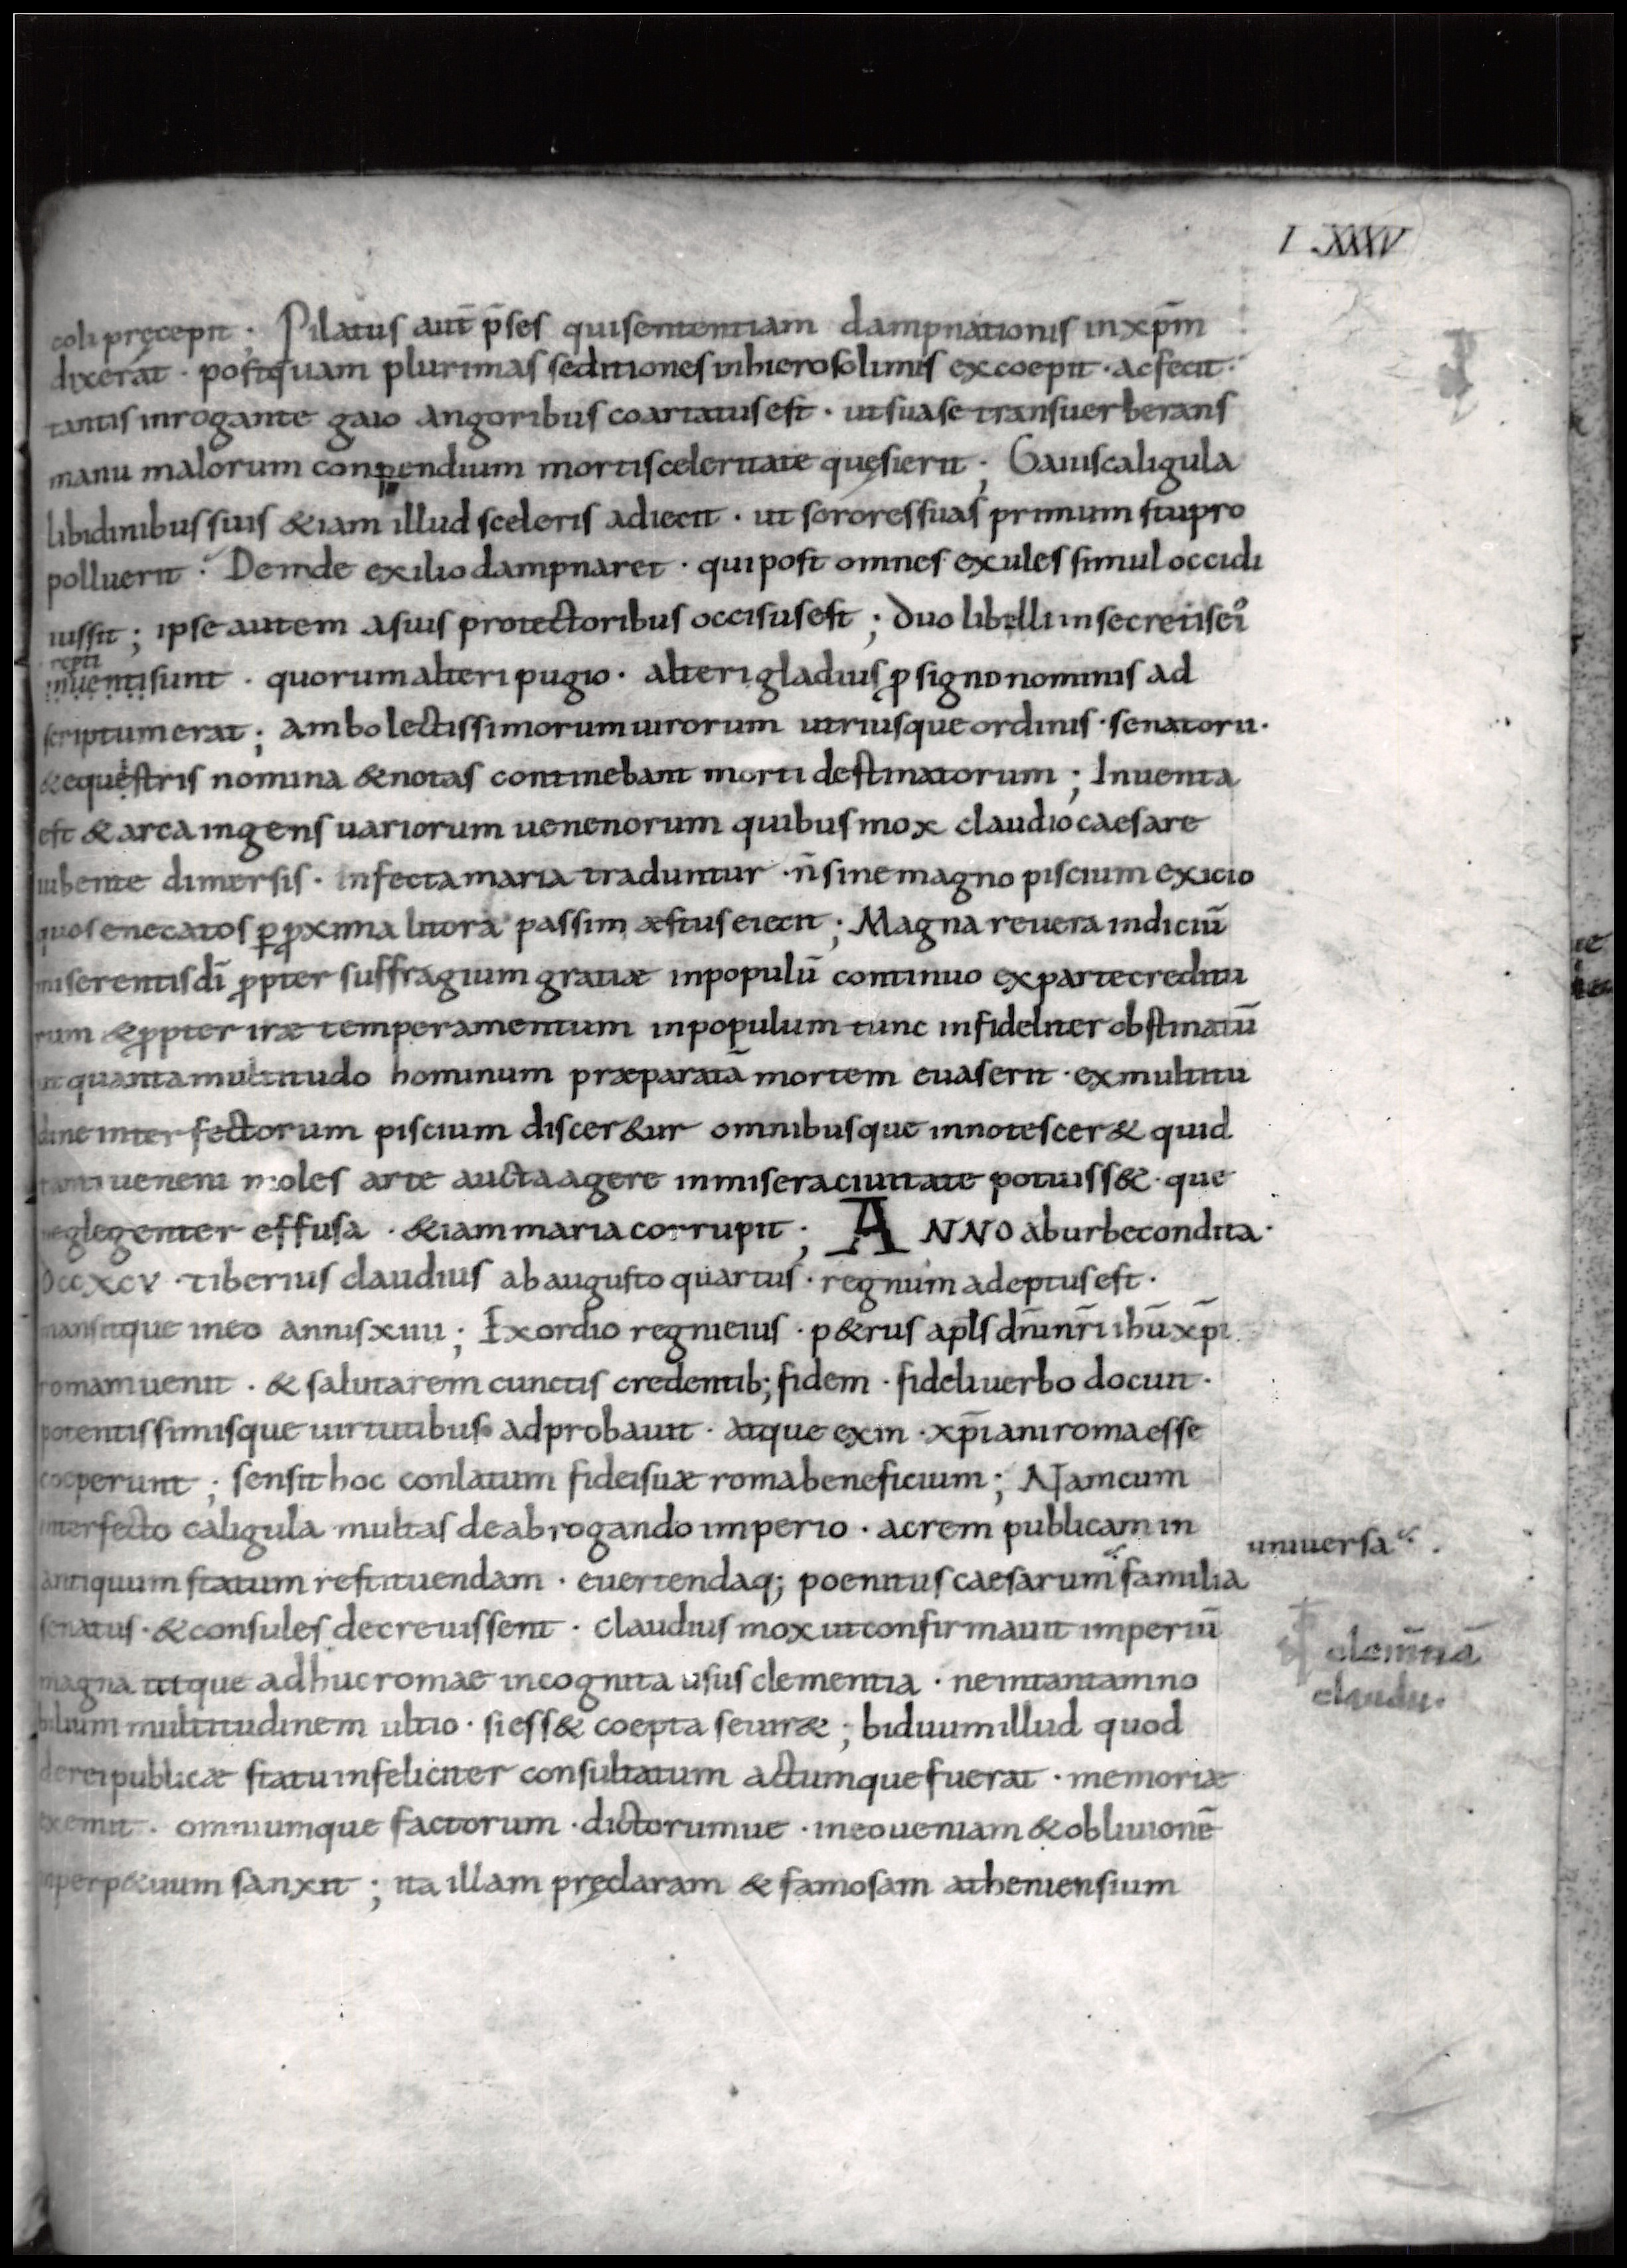 L XXXV
coli pręcepit ; Pilatus aut̄ p̄ses qui sententiam dampnationis in xp̄m
dixerat · postquam plurimas seditiones in hierosolimis excoepit · ac fecit ·
tantis inrogante gaio angoribus coartatus est · ut sua se transuerberans
manu malorum conpendium mortis celeritate quęsierit ; Gaius caligula
libidinibus suis & iam illud sceleris adiecit · ut sorores suas primum stupro
polluerit · Deinde exilio dampnaret · qui post omnes exules simul occidi
iussit ; ipse autem a suis protectoribus occisus est ; duo libelli in secretis ei᷒
repti
inuenti sunt · quorum alteri pugio · alteri gladius ꝓ signo nominis ad
scriptum erat ; ambo lectissimorum uirorum utriusque ordinis · senatorii ·
& equestris nomina & notas continebant morti destinatorum ; Inuenta
est & arca ingens uariorum uenenorum quibus mox claudio caesare
iubente dimersis · infecta maria traduntur · n̄ sine magno piscium exicio
quos enecatos ꝑ ꝓxima litora passim æstus eiecit ; Magna reuera indiciū
miserentis dī ꝓpter suffragium gratiæ in populū continuo ex parte creditu
rum & ꝓpter iræ temperamentum in populum tunc infideliter obstinatū
ut quanta multitudo hominum præparatā mortem euaserit · ex multitu
dine interfectorum piscium discer&ur omnibusque innotescer& quid
tanti ueneni moles arte aucta agere in misera ciuitate potuiss& · que
neglegenter effusa · &iam maria corrupit ; ANNO ab urbe condita ·
Dccxcv · tiberius claudius ab augusto quartus · regnum adeptus est ·
mansitque in eo annis xiiii ; Exordio regni eius · p&rus apl̄s dn̄i nr̄i ihū xp̄i
romam uenit · & salutarem cunctis credentib; fidem · fideli uerbo docuit ·
potentissimisque uirtutibus adprobauit · atque exin · xp̄iani romae esse
coeperunt ; sensit hoc conlatum fidei suæ roma beneficium ; Nam cum
interfecto caligula multas de abrogando imperio · ac rem publicam in
uniuersa
antiquum statum restituendam · euertendaq; poenitus caesarum familia
senatus · & consules decreuissent · claudius mox ut confirmauit imperiū
magna utque adhuc romae incognita usus clementia · ne in tantam no
clem̄tiā
claudii.
bilium multitudinem ultio · si ess& coepta seuiræ ; biduum illud quod
de rei publicæ statu infeliciter consultatum actumque fuerat · memoriæ
exemit · omniumque factorum · dictorumue · in eo ueniam & obliuionē
inperp&uum sanxit ; ita illam pręclaram & famosam atheniensium